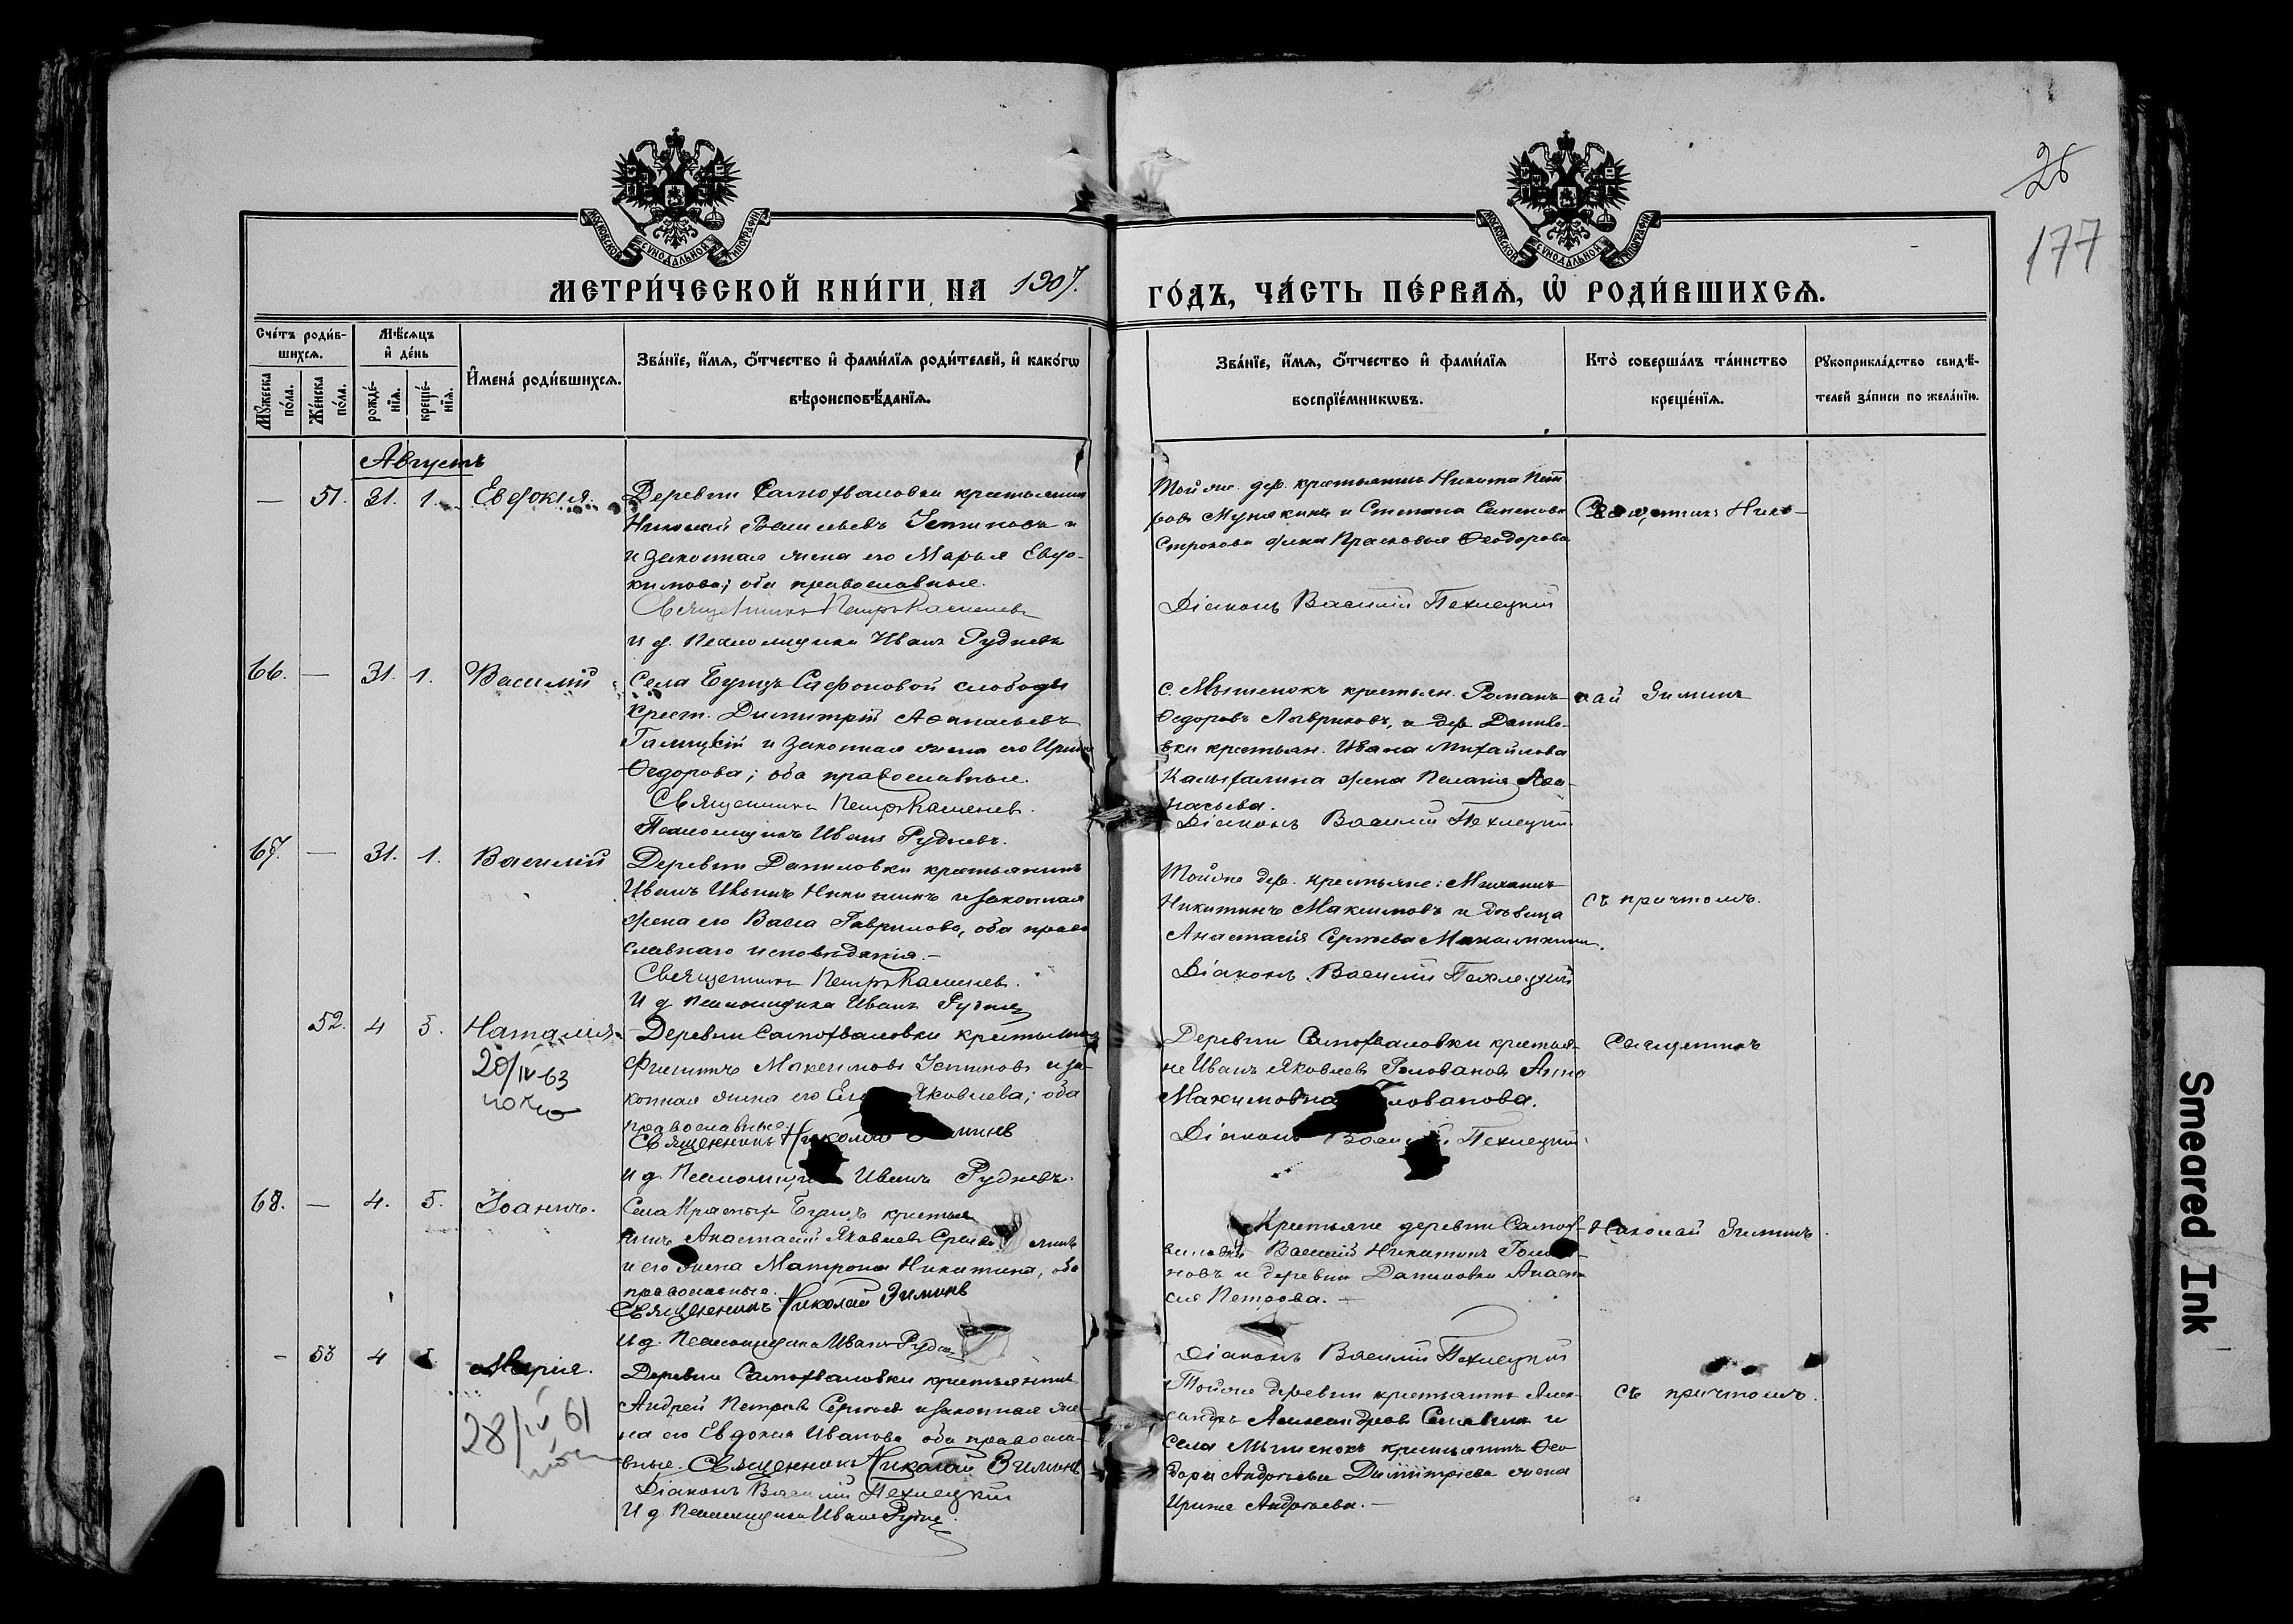 26
177
МОСКОВСКОЙ СѴНОДАЛЬНОЙ ТИПОГРАФІИ
МОСКОВСКОЙ СѴНОДАЛЬНОЙ ТИПОГРАФІИ
МЕТРИ́ЧЕСКОЙ КНИ́ГИ НА 1907.
ГО́ДЪ, ЧА́СТЬ ПЕ́РВАѦ, Ѽ РОДИ́ВШИХСѦ.
Сче́тъ роди́в-
шихсѧ.
Мꙋ́жеска по́ла.
Же́нска по́ла.
Мѣ́сѧцъ
и҆ де́нь
рожде́-
нїѧ.
креще́-
нїѧ.
И҆мена̀ роди́вшихсѧ.
Зва́нїе, и҆́мѧ, ѻ҆́тчество и҆ фами́лїѧ роди́телей, и҆ како́гѡ
вѣроисповѣ́данїѧ.
Зва́нїе, и҆́мѧ, ѻ҆́тчество и҆ фами́лїѧ
воспрїе́мникѡвъ.
Кто̀ соверша́лъ та́инство
креще́нїѧ.
Рꙋкоприкла́дство свидѣ́-
телей за́писи по жела́нїю.
Августъ
— 51. 31. 1. Евдокия.
Деревни Самохваловки крестьянин
Николай Васильевъ Устиновъ и
и законная жена его Марья Евдо-
кимова; оба православные.
Священникъ Петръ Каменевъ
И д. Псаломщика Иванъ Рудневъ
Той же дер. крестьянинъ Никита Пет
ровъ Мунякинъ и Степана Семенова
Строкова жена Прасковья Ѳеодорова
Діаконъ Василій Пехлецкій
Священникъ Нико-
66. — 31. 1. Василій
Села Сафоновой слободы
Крест. Димитрій Аѳанасьевъ
Галицкій и законная жена его Ирина
Ѳедорова; оба православные.
Священникъ Петръ Каменевъ.
Псаломщикъ Иванъ Рудневъ.
с. Мышенокъ крестьян. Романъ
Ѳедоровъ и дер. Данило-
вки крестьян. Ивана Михайлова
жена Пелагія Аѳа-
насьева.
Діаконъ Василій Пехлецкій
лай Зиминъ
67. — 31. 1. Василій
Деревни Даниловки крестьянинъ
Иванъ и законная
жена его Васса Гаврилова, оба право
славнаго исповѣданія.—
Священникъ Петръ Каменевъ.
И д Псаломщика Иванъ Рудневъ
Той же дер. крестьяне: Михаилъ
Никитинъ Максимовъ и дѣвица
Анастасія Сергѣева
Діаконъ Василій Пехлецкій
съ причтомъ.
52. 4 5. Наталія.
20/IV-63
Деревни Самохваловки крестьянинъ
Филиппъ Максимовъ Устиновъ и за-
конная жена его Яковлева; оба
православные.
Священникъ Николай
И д Иванъ Рудневъ.
Деревни Самохваловки крестья-
не Иванъ Яковлевъ Головановъ Анна
Максимовна
Діаконъ Василій Пехлецкій
Священникъ
68. — 4. 5. Іоаннъ.
Села
Анастасій Яковлевъ
и его жена Матрона Никитина, оба
православные.
Священникъ Николай Зиминъ
И д. Псаломщика Иванъ
Крестьяне деревни Самох-
Василій Никитинъ
новъ и деревни Даниловки Анаста
сія Петрова.—
Діаконъ Василій Пехлецкій
Николай Зиминъ.
— 53 4 5 Марія.
28/IV 61
Деревни Самохваловки крестьянинъ
Андрей Петровъ Сергѣевъ и законная же-
на его Евдокия Иванова оба правосла-
вные. Священникъ Николай Зиминъ
Діаконъ Василій Пехлецкій
И д Псаломщика Иванъ
Той же деревни крестьянинъ Алек-
сандръ Александровъ и
Села Мышенокъ крестьянина Ѳео-
дора Андреева Димитріева жена
Ирина Андреева.—
съ причтомъ.
Smeared Ink